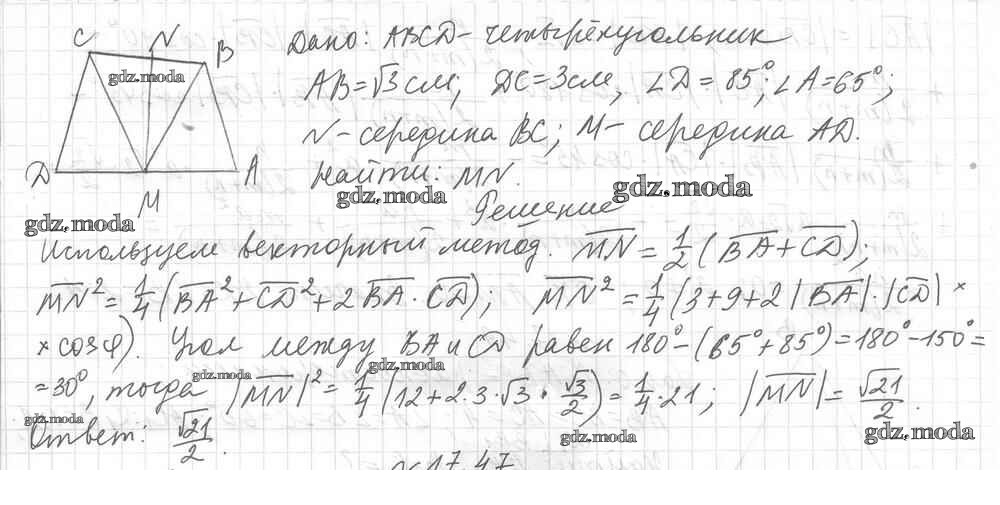 C N B
gdz.moda
D M A
Дано: ABCD - четырёхугольник
AB = √3 см, DC = 3 см, ∠D = 85°; ∠A = 65°;
N - середина BC; M - середина AD.
Найти: MN.
gdz.moda
gdz.moda
gdz.moda
Решение
Используем векторный метод. MN = 1/2 (BA + CD);
MN² = 1/4 (BA² + CD² + 2 BA · CD); MN² = 1/4 (3 + 9 + 2 |BA| · |CD| ×
× cos φ). Угол между BA и CD равен 180° - (65° + 85°) = 180° - 150° =
gdz.moda
gdz.moda
= 30°, тогда |MN|² = 1/4 (12 + 2 · 3 · √3 · √3/2) = 1/4 · 21; |MN| = √21/2.
gdz.moda
gdz.moda
gdz.moda
Ответ: √21/2.
17.47